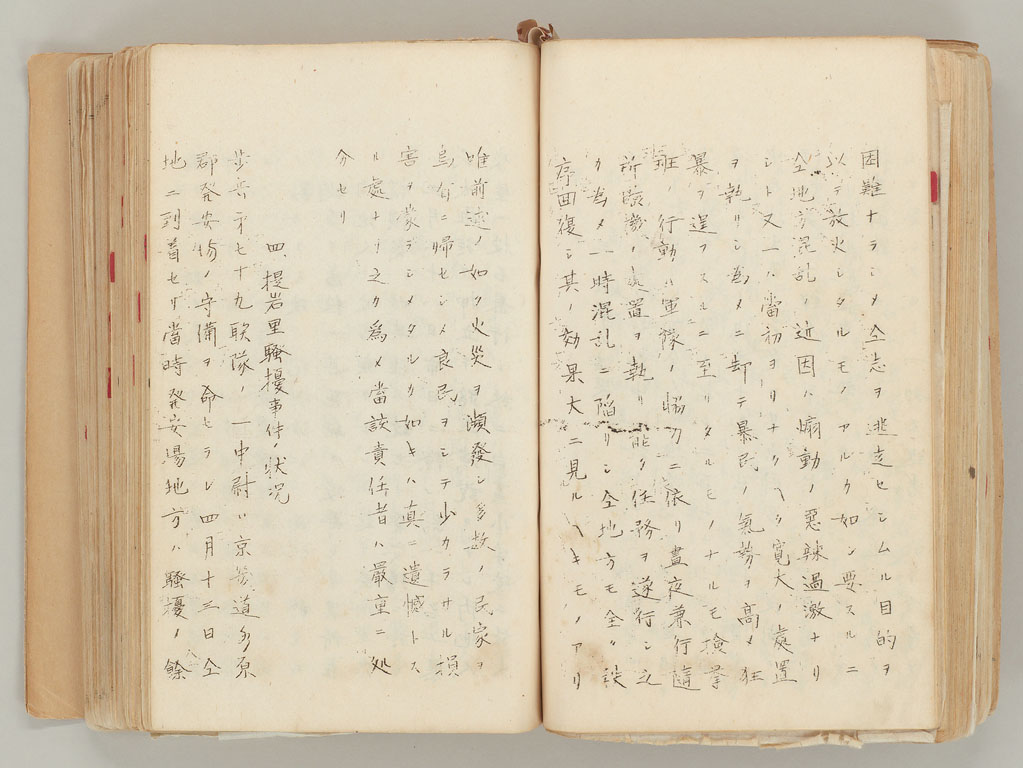 困難ナラシメ仝志ヲ逃走セシムル目的ヲ
以テ放火シタルモノアルカ如シ要スルニ
仝地方混乱ノ近因ハ煽動ノ悪辣過激ナリ
シト又一ハ當初ヨリナクヘク寛大ノ處置
ヲ執リシ為メニ却テ暴民ノ氣勢ヲ高メ狂
暴ヲ逞フスルニ至リタルモノナルモ検挙
班ノ行動ハ軍隊ノ協力ニ依リ晝夜兼行隨
所臨機ノ處置ヲ執リ能ク任務ヲ遂行シ之
カ為メ一時混乱ニ陥リシ仝地方モ全ク秩
序回復シ其ノ効果大ニ見ルヘキモノアリ
唯前述ノ如ク火災ヲ頻發シ多数ノ民家ヲ
烏有ニ帰セシメ良民ヲシテ少カラサル損
害ヲ蒙ラシメタルカ如キハ真ニ遺憾トス
ル處ナリ之カ為メ當該責任者ハ嚴重ニ処
分セリ
四、提岩里騒擾事件ノ状況
歩兵第七十九联隊ノ一中尉ハ京畿道水原
郡発安場ノ守備ヲ命セラレ四月十三日仝
地ニ到着セリ當時発安場地方ハ騒擾ノ餘